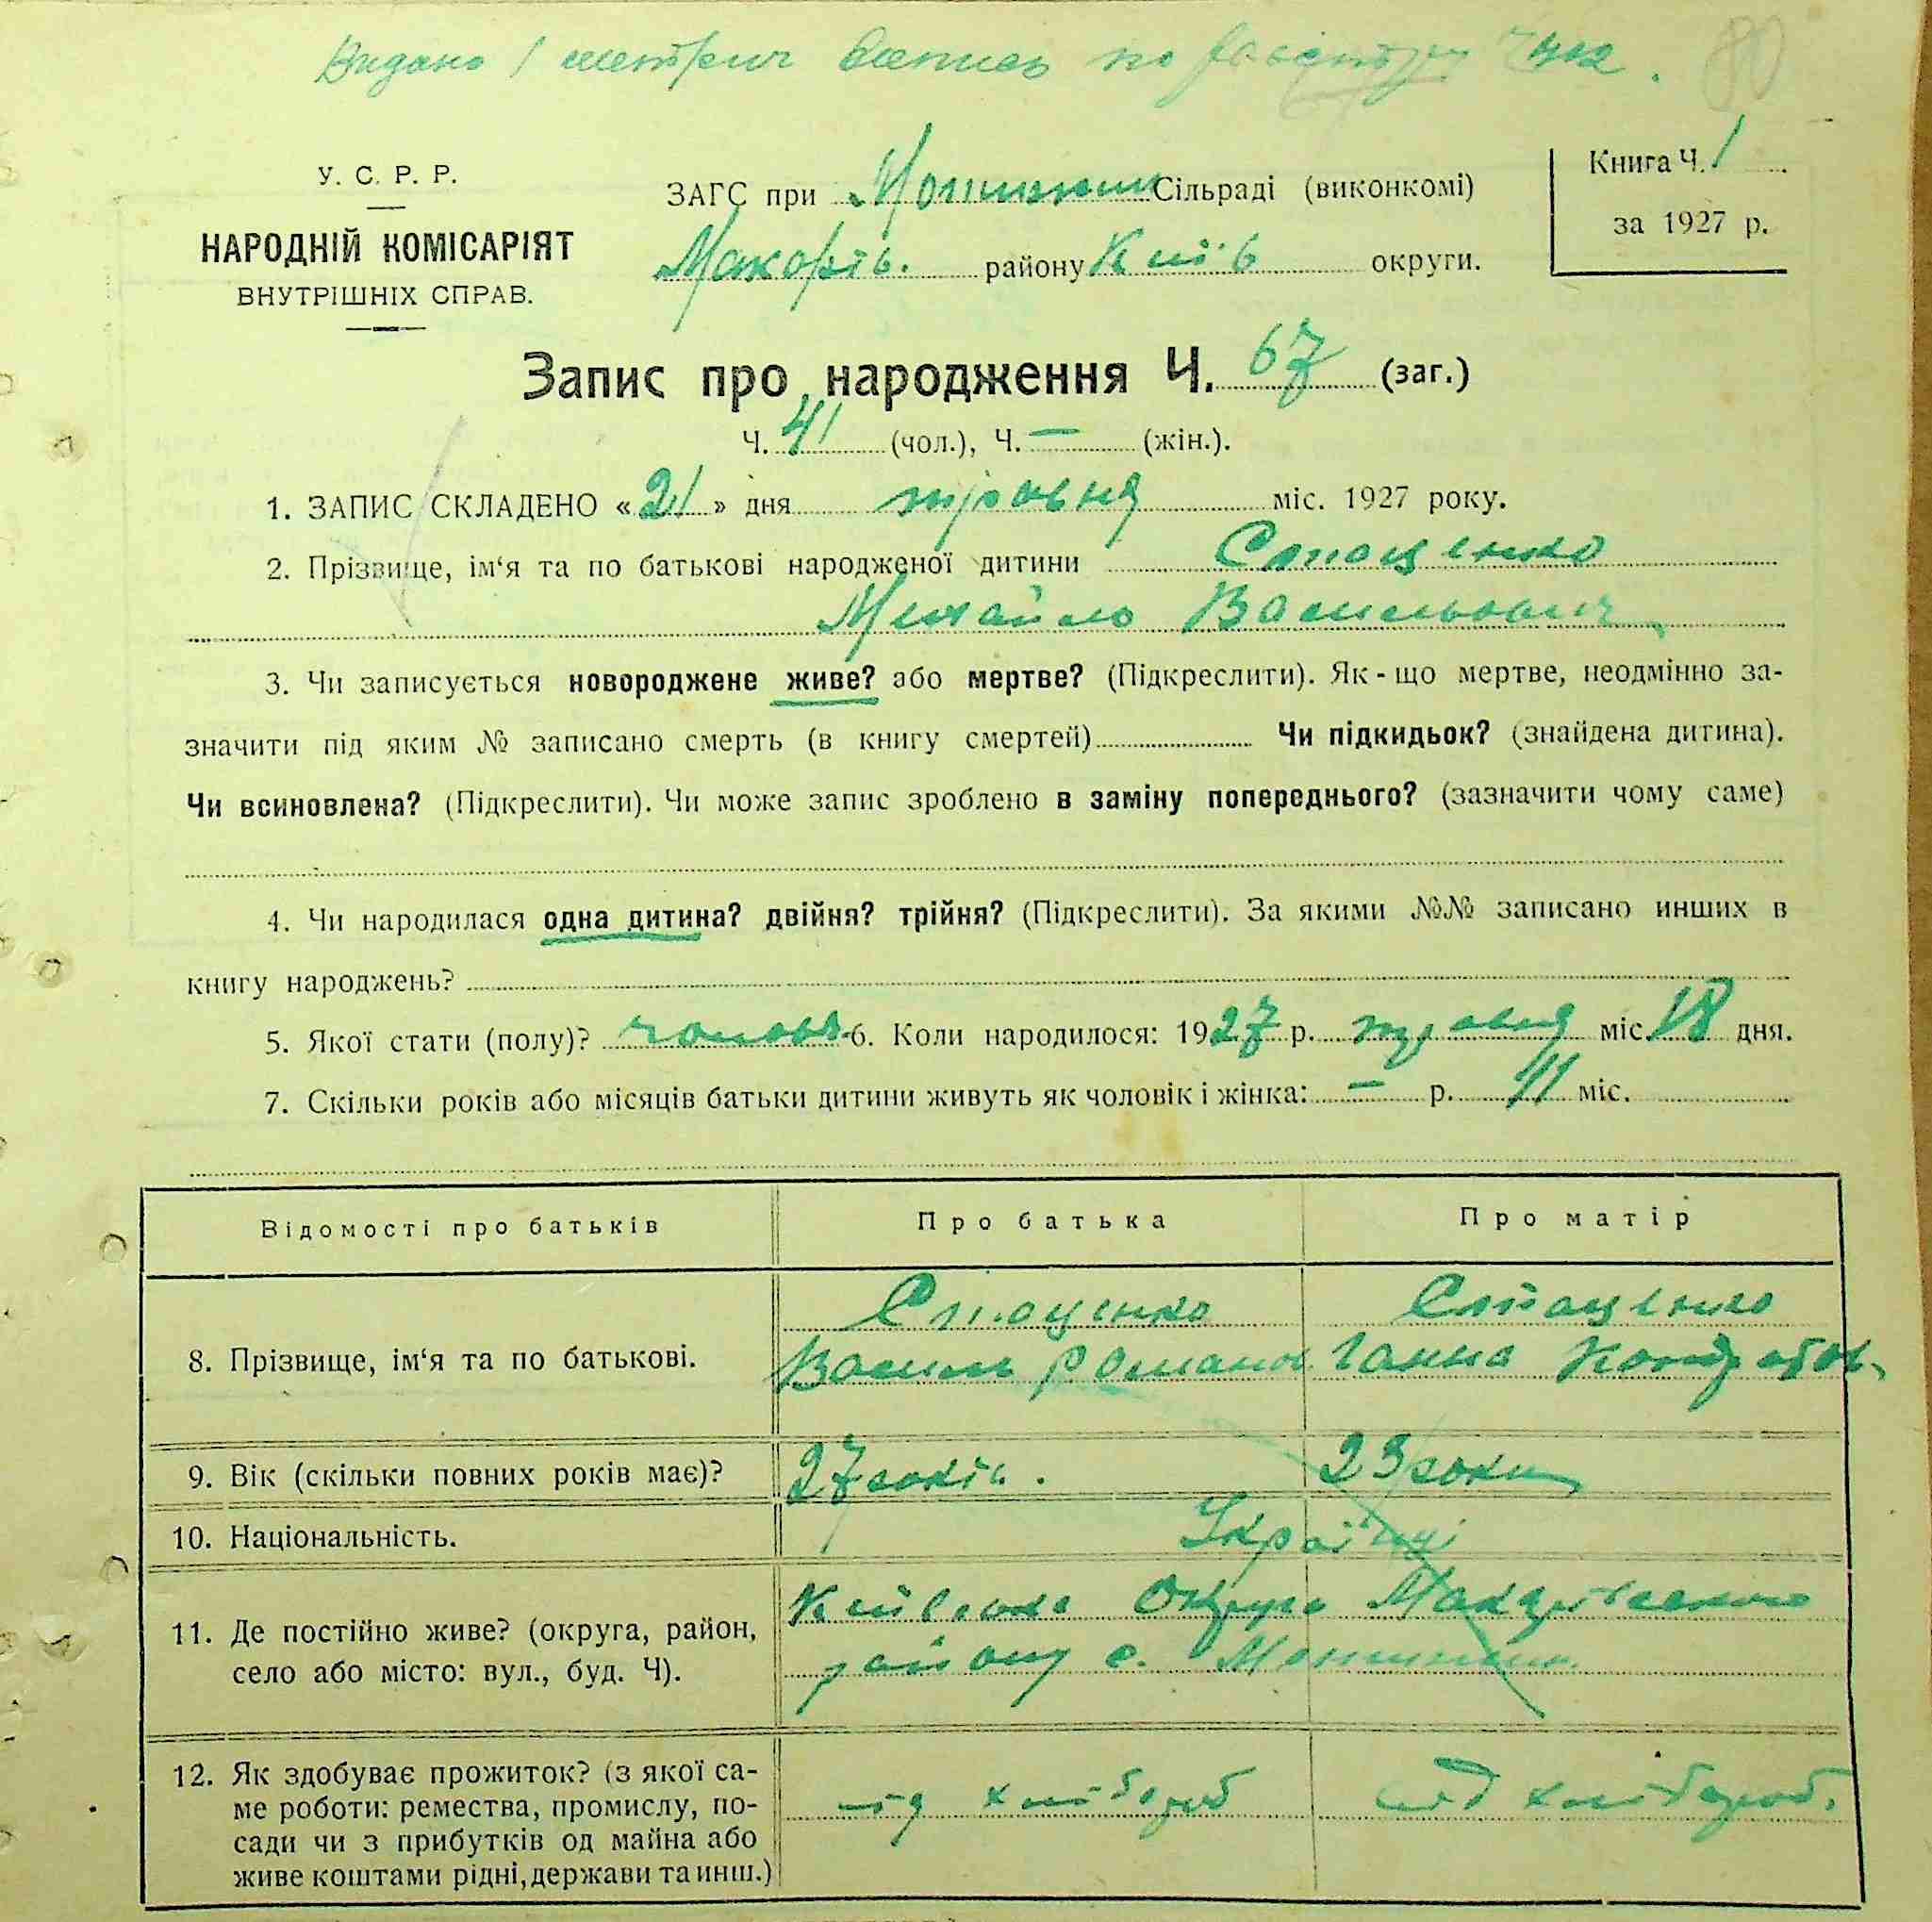 Видано 1 метрич запись по
80
У. С. Р. Р.
НАРОДНІЙ КОМІСАРІЯТ
ВНУТРІШНІХ СПРАВ.
ЗАГС при Мотижин Сільраді (виконкомі)
Макорів. району Київ округи.
Книга Ч. 1
за 1927 р.
Запис про народження Ч. 67 (заг.)
Ч. 41 (чол.), Ч. — (жін.).
1. ЗАПИС СКЛАДЕНО «21» дня травня міс. 1927 року.
2. Прізвище, ім‘я та по батькові народженої дитини Стаценко
Михайло Васильович
3. Чи записується новороджене живе? або мертве? (Підкреслити). Як-що мертве, неодмінно за-
значити під яким № записано смерть (в книгу смертей) Чи підкидьок? (знайдена дитина).
Чи всиновлена? (Підкреслити). Чи може запис зроблено в заміну попереднього? (зазначити чому саме)
4. Чи народилася одна дитина? двійня? трійня? (Підкреслити). За якими №№ записано инших в
книгу народжень?
5. Якої стати (полу)? чоловіч 6. Коли народилося: 1927 р. травня міс. 18 дня.
7. Скільки років або місяців батьки дитини живуть як чоловік і жінка: — р. 11 міс.
Відомості про батьків Про батька Про матір
8. Прізвище, ім‘я та по батькові.
Стаценко
Василь Романов
Стаценко
Ганна Кондратов.
9. Вік (скільки повних років має)? 27 років. 23 роки
10. Національність. Українці
11. Де постійно живе? (округа, район,
село або місто: вул., буд. Ч).
Київська Округа Макарівського
району с. Мотижин.
12. Як здобуває прожиток? (з якої са-
ме роботи: ремества, промислу, по-
сади чи з прибутків од майна або
живе коштами рідні, держави та инш.)
від хлібороб
від хлібороб.